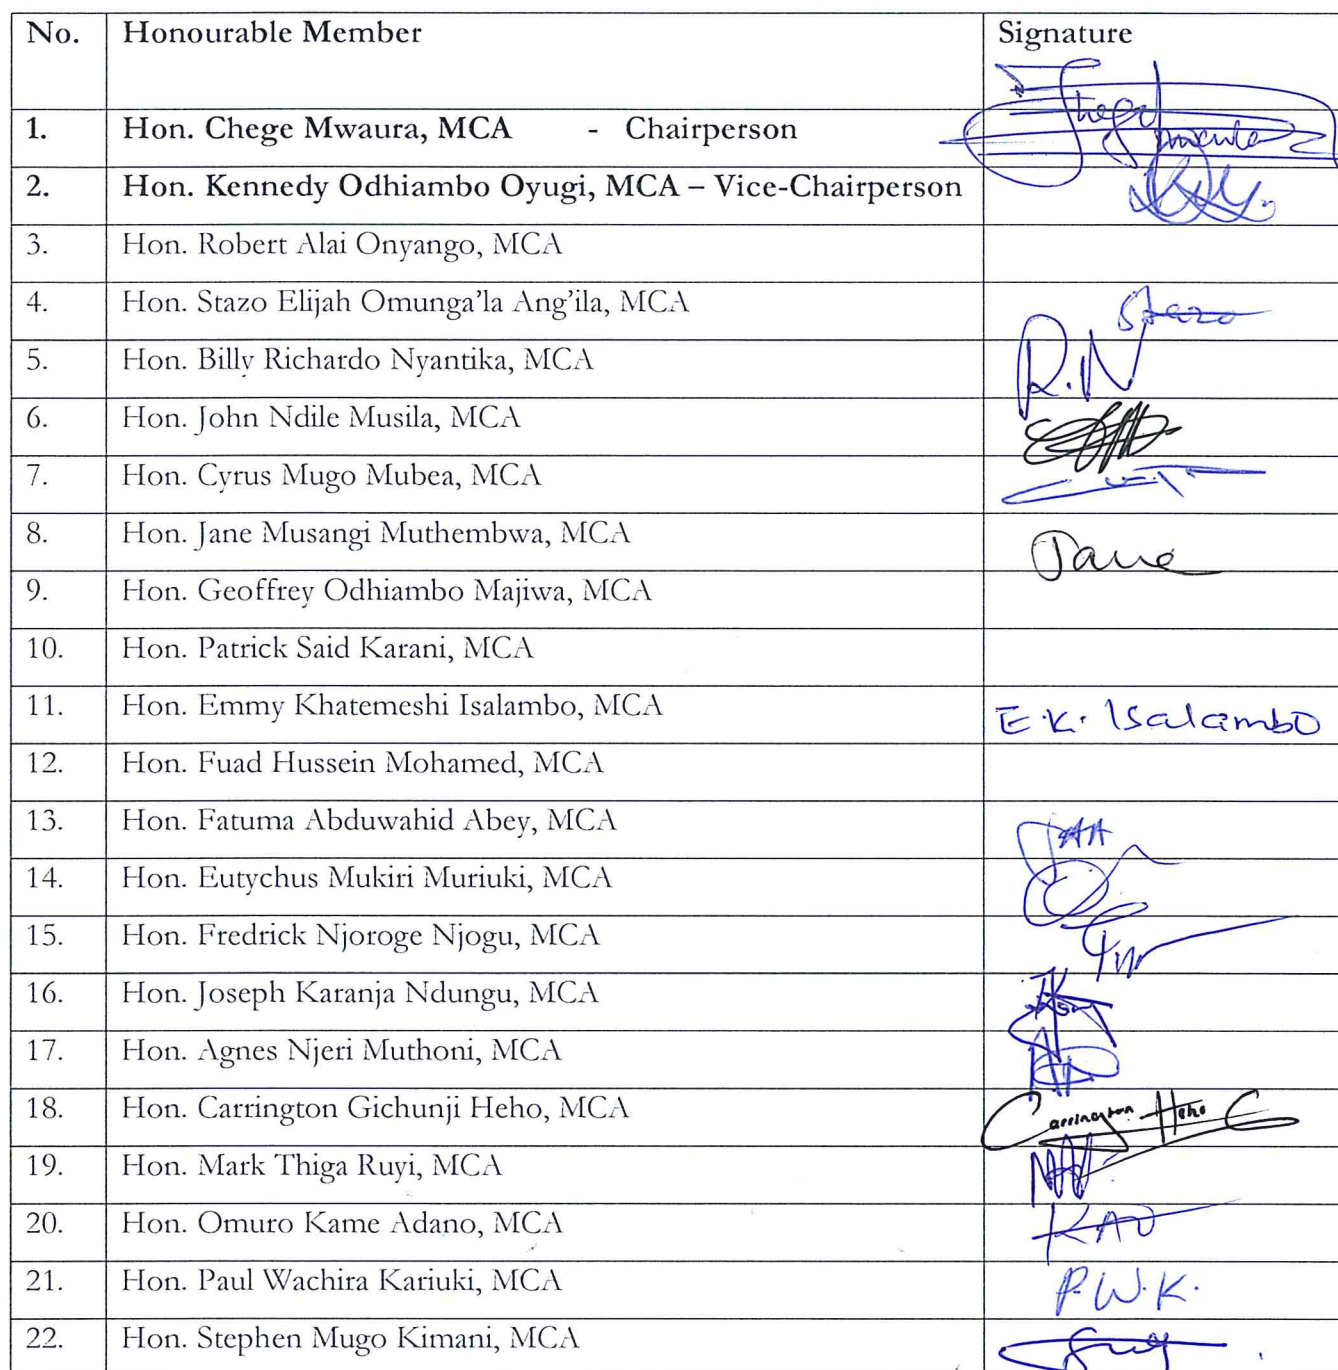 No. Honourable Member Signature
1. Hon. Chege Mwaura, MCA - Chairperson
2. Hon. Kennedy Odhiambo Oyugi, MCA – Vice-Chairperson
3. Hon. Robert Alai Onyango, MCA
4. Hon. Stazo Elijah Omunga'la Ang'ila, MCA Stazo
5. Hon. Billy Richardo Nyantika, MCA R.N
6. Hon. John Ndile Musila, MCA
7. Hon. Cyrus Mugo Mubea, MCA
8. Hon. Jane Musangi Muthembwa, MCA Jane
9. Hon. Geoffrey Odhiambo Majiwa, MCA
10. Hon. Patrick Said Karani, MCA
11. Hon. Emmy Khatemeshi Isalambo, MCA E.K. Isalambo
12. Hon. Fuad Hussein Mohamed, MCA
13. Hon. Fatuma Abduwahid Abey, MCA
14. Hon. Eutychus Mukiri Muriuki, MCA
15. Hon. Fredrick Njoroge Njogu, MCA
16. Hon. Joseph Karanja Ndungu, MCA
17. Hon. Agnes Njeri Muthoni, MCA
18. Hon. Carrington Gichunji Heho, MCA Carrington Heho
19. Hon. Mark Thiga Ruyi, MCA
20. Hon. Omuro Kame Adano, MCA KAO
21. Hon. Paul Wachira Kariuki, MCA P.W.K.
22. Hon. Stephen Mugo Kimani, MCA